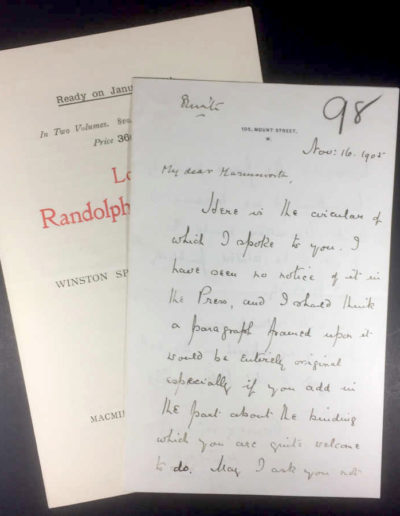 Ready on Janu
In Two Volumes. 8vo.
Price 36
Lo
Randolph
WINSTON SP
MACMI
98
105, MOUNT STREET,
W.
Nov: 16. 1905
My dear Harmsworth,
Here is the circular of
which I spoke to you. I
have seen no notice of it in
the Press, and I should think
a paragraph framed upon it
would be entirely original
especially if you add in
the part about the binding
which you are quite welcome
to do. May I ask you not